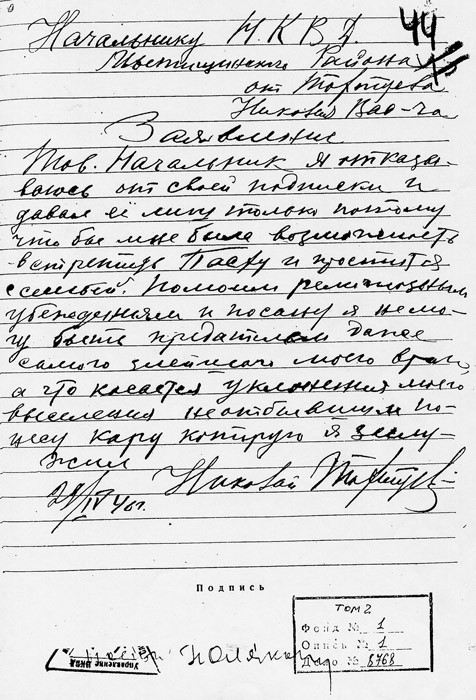 44
Начальнику Н.К.В.Д.
Мытищинского Района
от
Николая Вас-ча
Заявление
Тов. Начальник я отказы-
ваюсь от своей подписки и
давал её лишь только потому
что бы мне была возможность
встретить Пасху и проститься
с семьей. По моим религиозным
убеждениям и по сану я не мо-
гу быть предателем даже
самого злейшего моего врага,
а что касается уклонения моего
выселения по-
несу кару которую я заслу-
жил
Николай
Подпись
ТОМ 2
Фонд № 1
Опись № 1
Дело № 8768